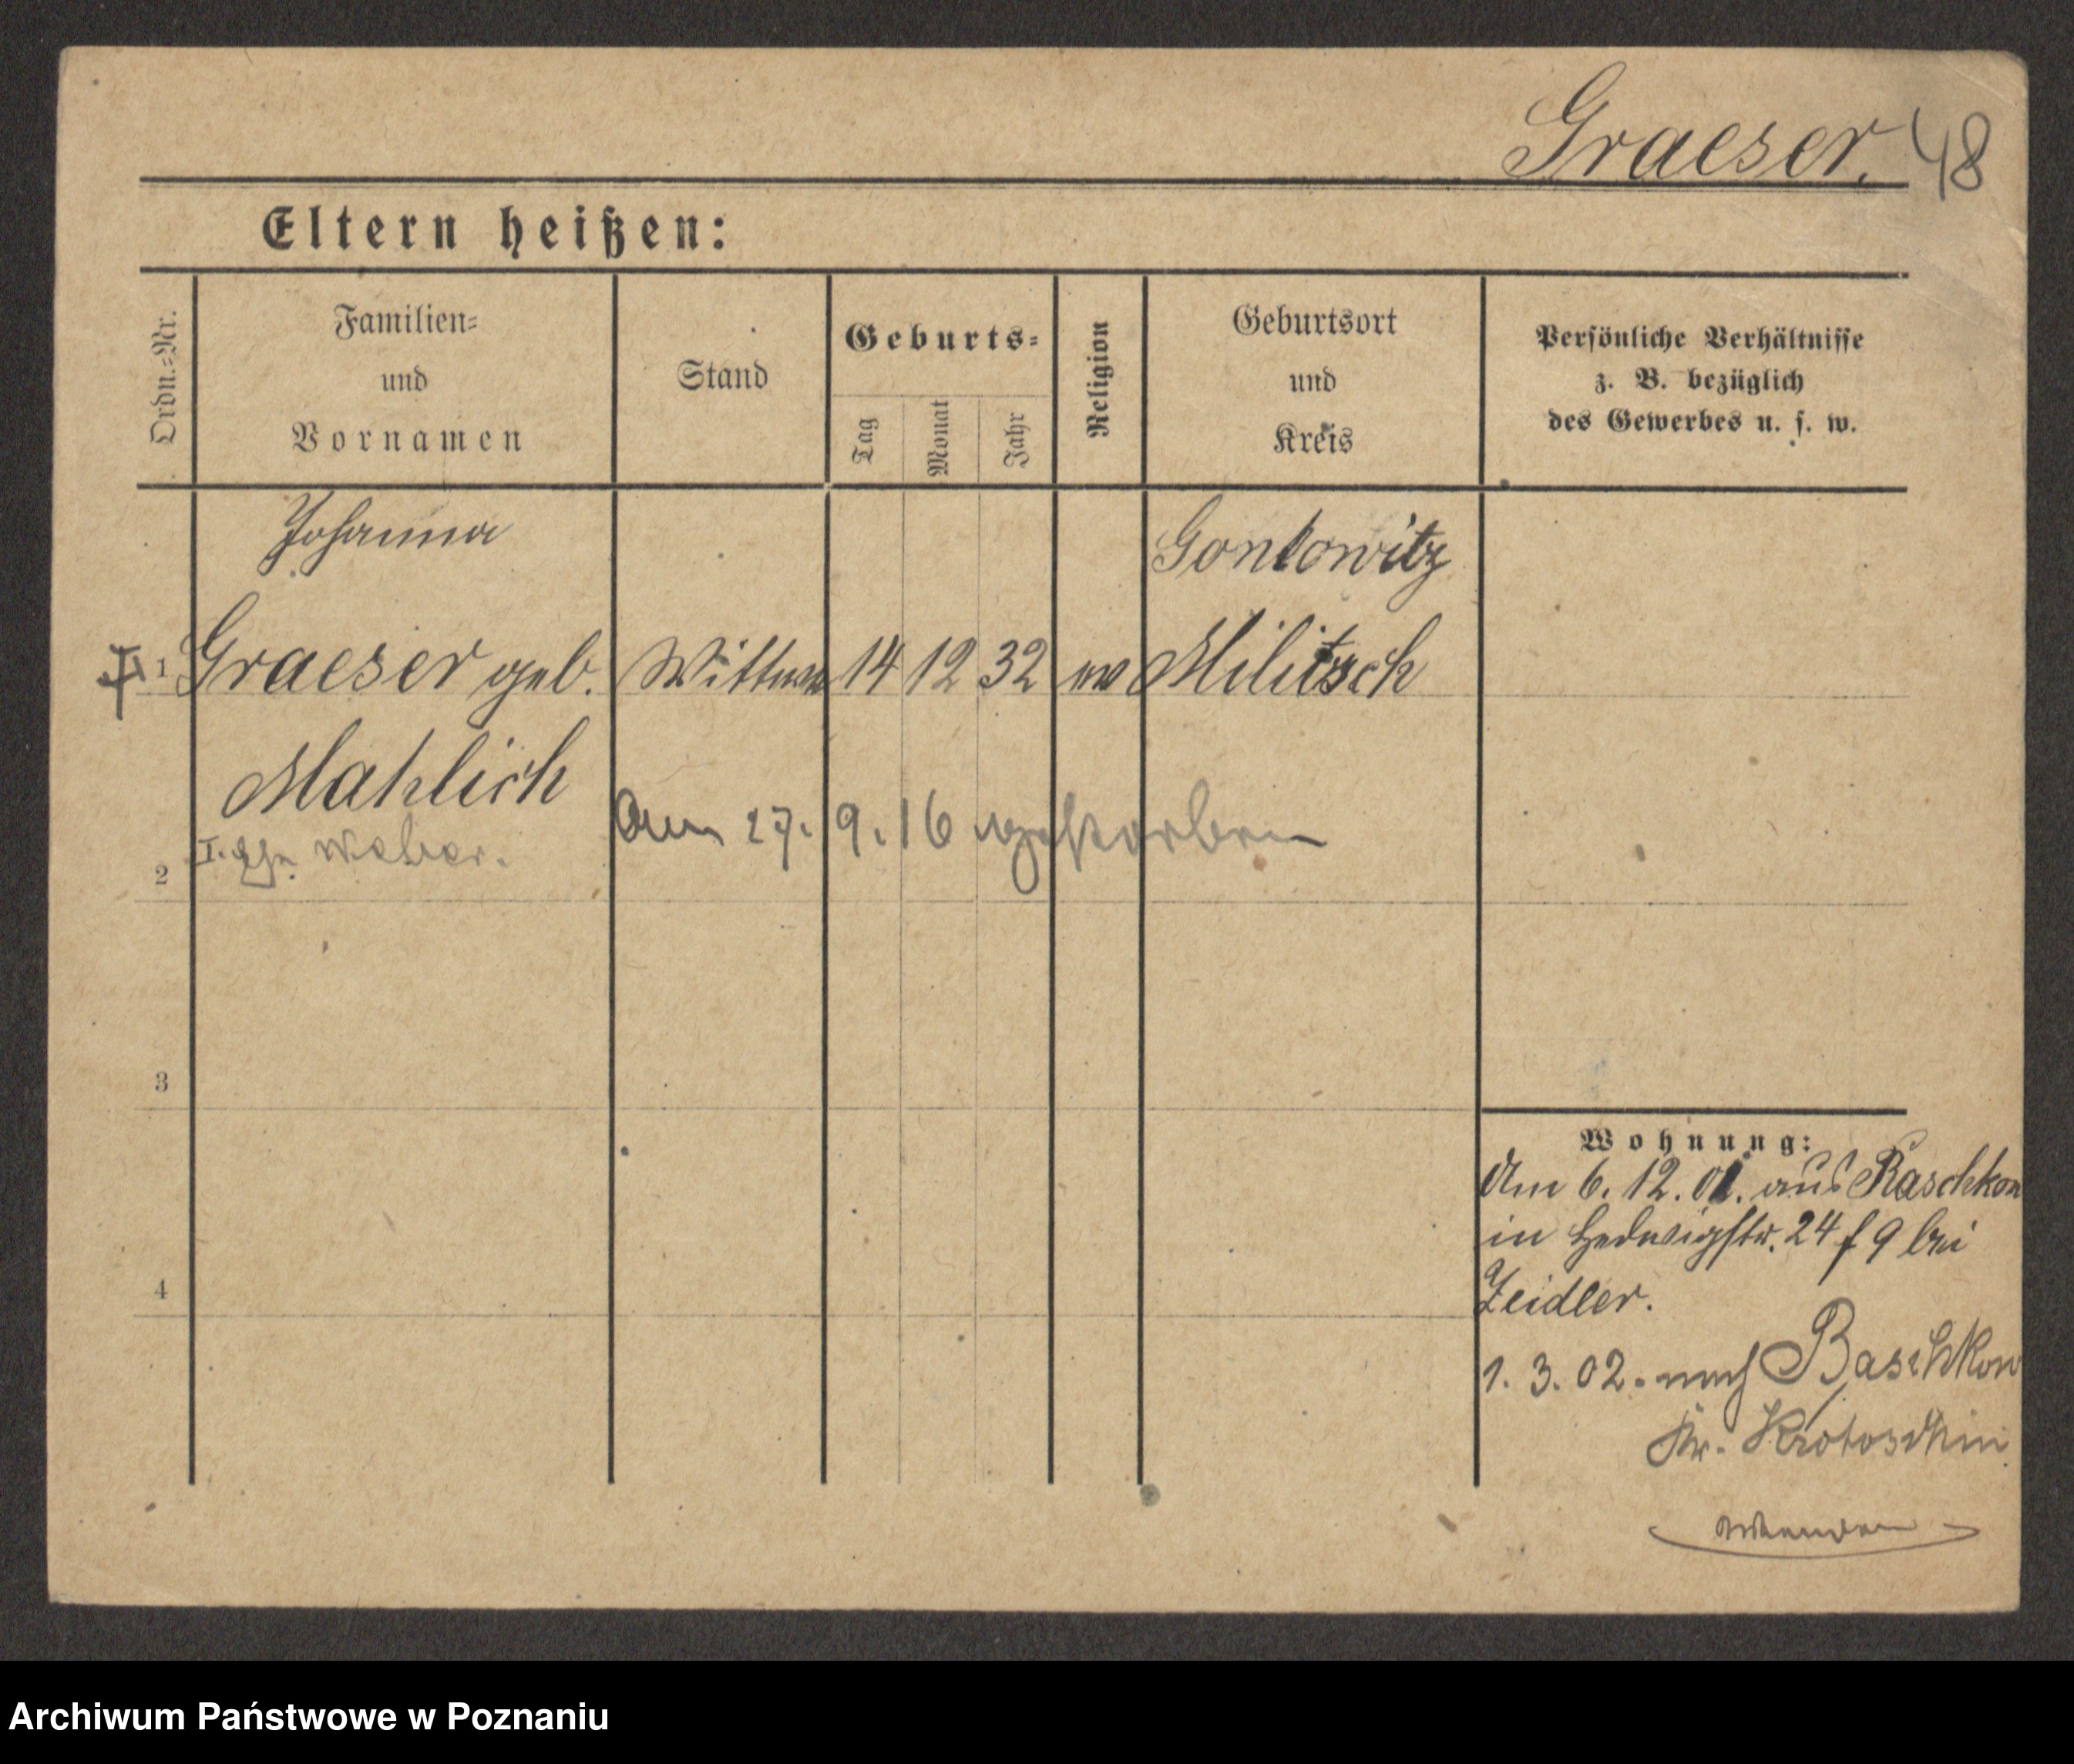 Graeser. 48
Eltern heißen:
Ordn.=Nr.
Familien=
und
Vornamen
Stand
Geburts=
Tag
Monat
Jahr
Religion
Geburtsort
und
Kreis
Persönliche Verhältnisse
z. B. bezüglich
des Gewerbes u. s. w.
Johanna
Gontowitz
1 Graeser geb. Wittwe 14 12 32 ev Militsch
Mahlich
Am 27. 9. 16 gestorben
2 I. Ehe Weber.
3
4
Wohnung:
Am 6. 12. 01. aus Raschkow
in Hedwigstr. 24 f 9 bei
Zeidler.
1. 3. 02. nach Baschkow
Kr. Krotoschin
Wenden
Archiwum Państwowe w Poznaniu